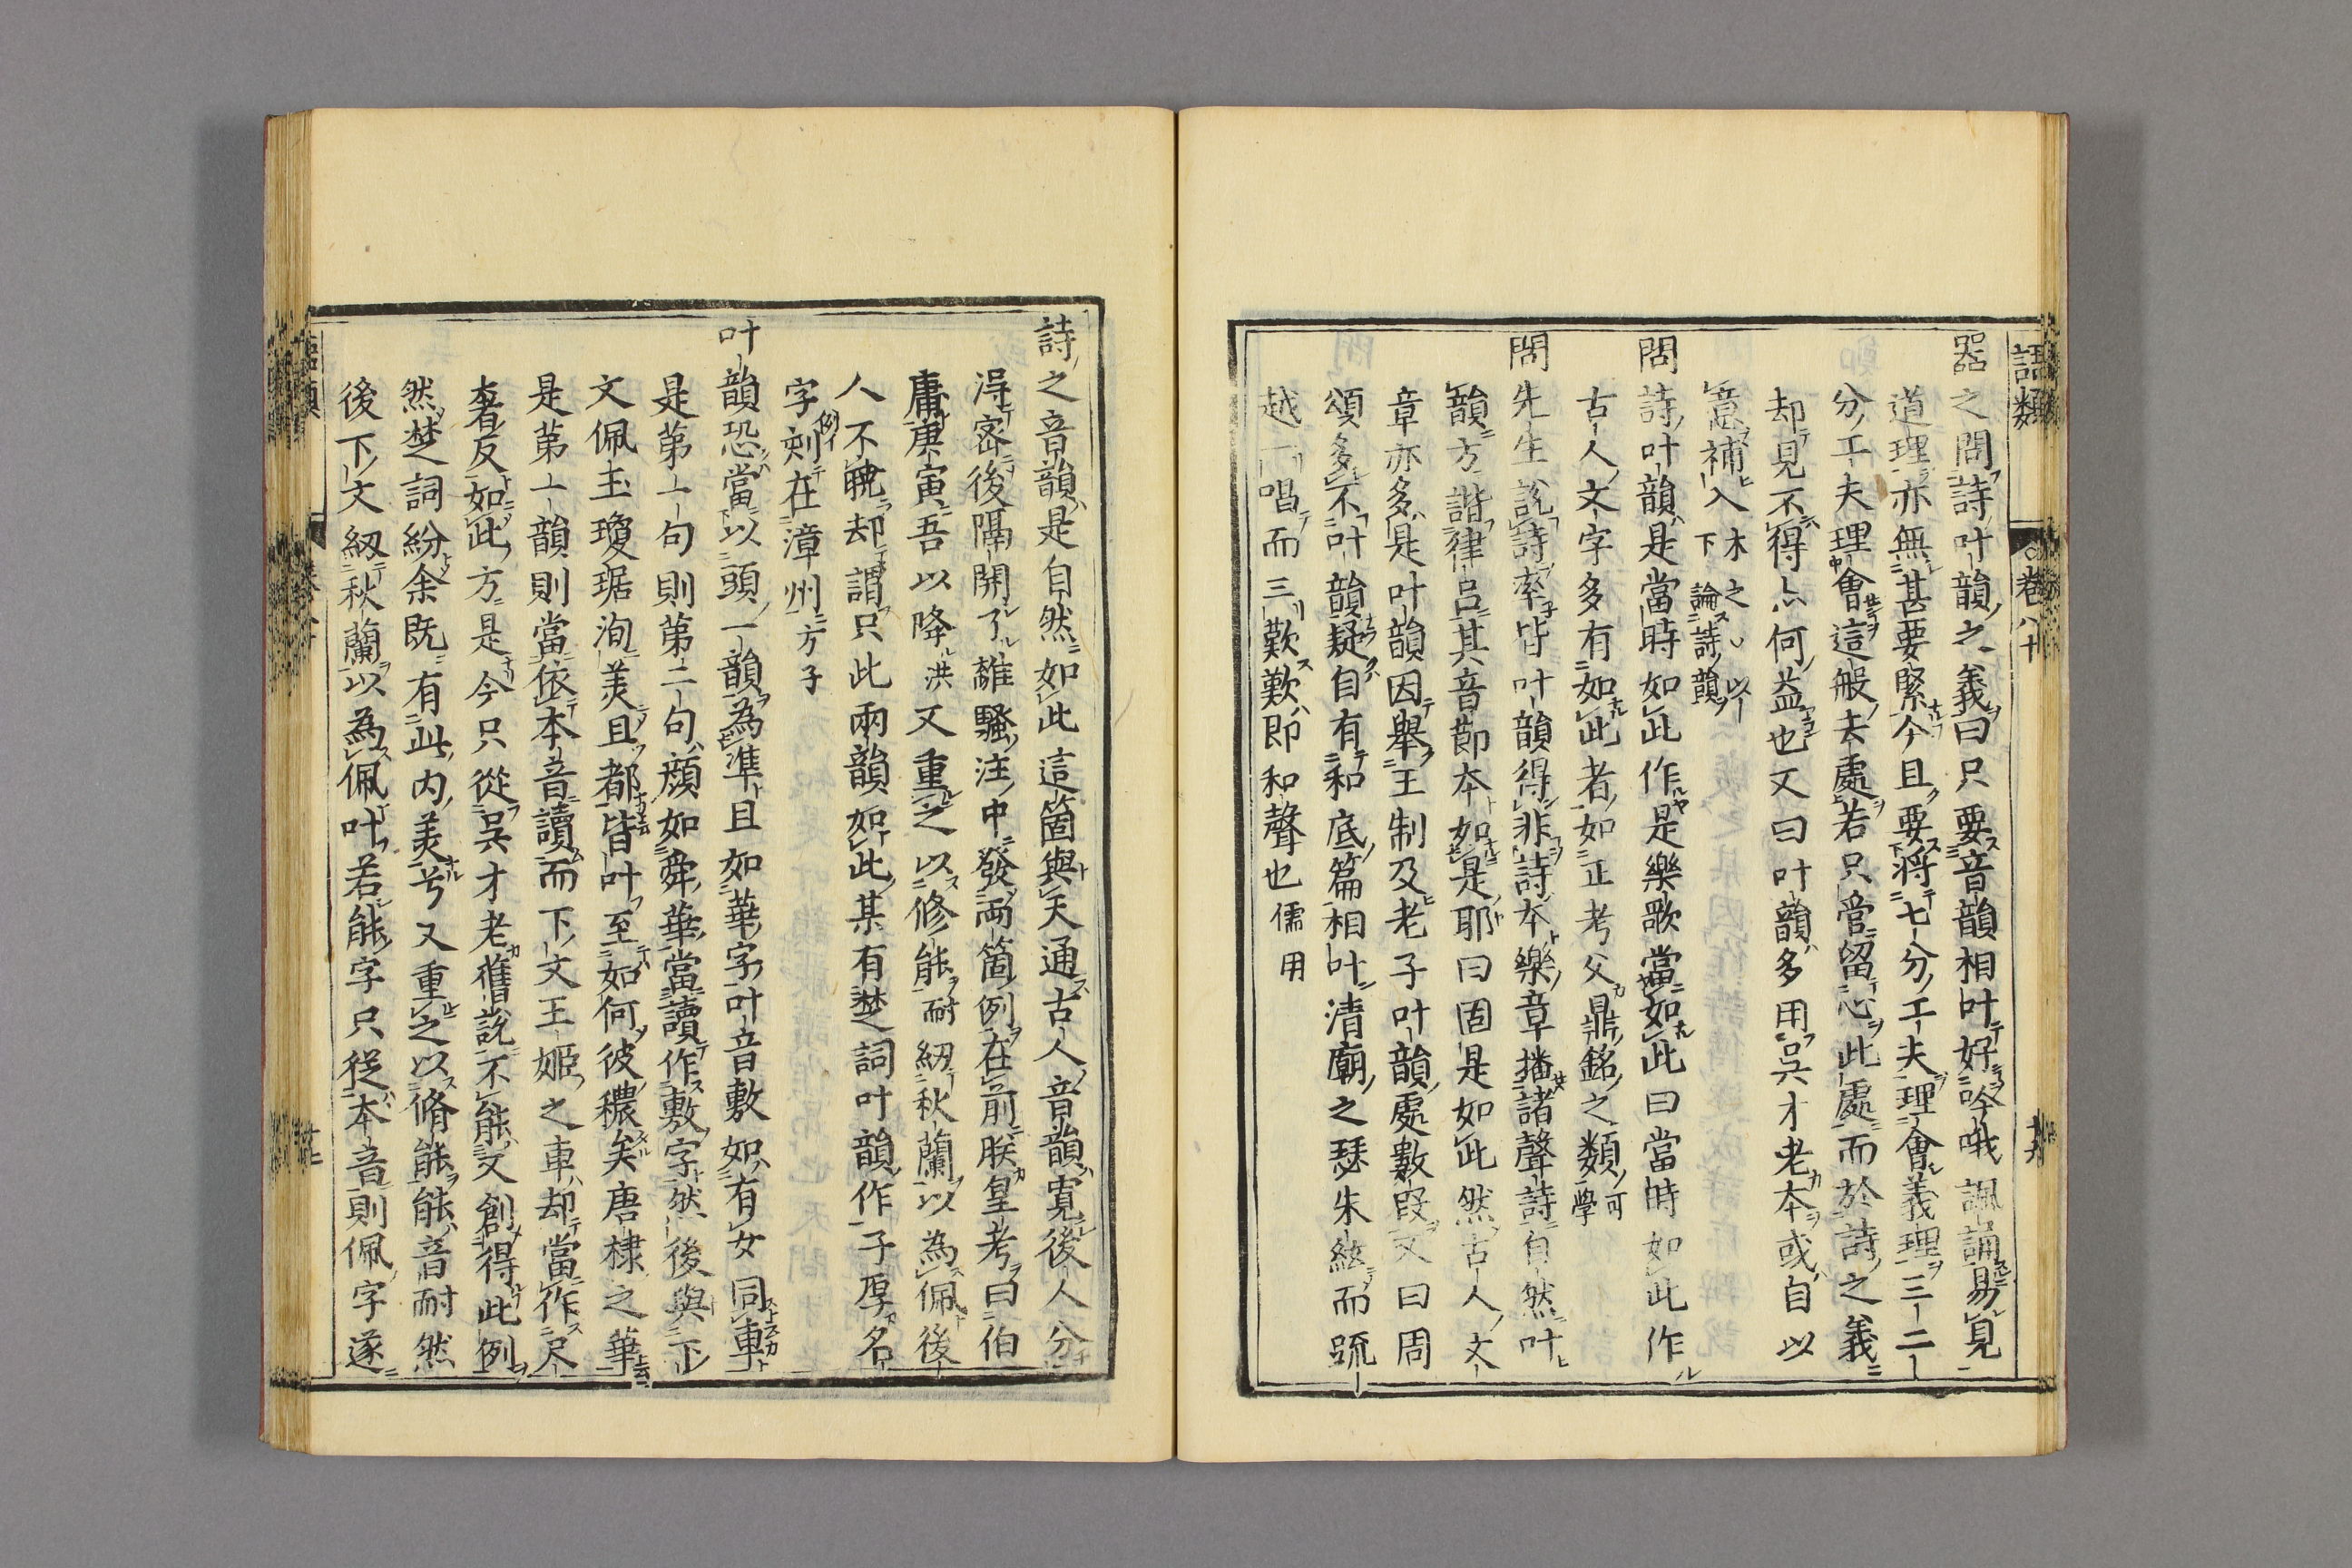 語類
卷八十
器之問詩叶韻之義曰只要音韻相叶好吟哦諷誦易見
道理亦無甚要緊今且要將七分工夫理會義理三二
分工夫理會這般去處若只管留心此處而於詩之義
却見不得亦何益也又曰叶韻多用吳才老本或自以
意補入木之以下論詩韻
問詩叶韻是當時如此作是樂歌當如此曰當時如此作
古人文字多有如此者如正考父鼎銘之類可學
問先生說詩率皆叶韻得非詩本樂章播諸聲詩自然叶
韻方諧律呂其音節本如是耶曰固是如此然古人文
章亦多是叶韻因舉王制及老子叶韻處數段又曰周
頌多不叶韻疑自有和底篇相叶清廟之瑟朱絃而疏
越一唱而三歎歎即和聲也儒用
詩之音韻是自然如此這箇與天通古人音韻寬後人分
得密後隔開了離騷注中發兩箇例在前朕皇考曰伯
庸庚寅吾以降洪又重之以修能耐紉秋蘭以為佩後
人不曉却謂只此兩韻如此某有楚詞叶韻作子厚名
字刻在漳州方子
例イ
叶韻恐當以頭一韻為準且如華字叶音敷如有女同車
是第一句則第二句顏如舜華當讀作敷字然後與下
文佩玉瓊琚洵美且都皆叶至如何彼穠矣唐棣之華
是第一韻則當依本音讀而下文王姬之車却當作尺
奢反如此方是今只從吳才老舊說不能又創得此例
然楚詞紛余既有此內美兮又重之以脩能能音耐然
後下文紉秋蘭以為佩叶若能字只從本音則佩字遂